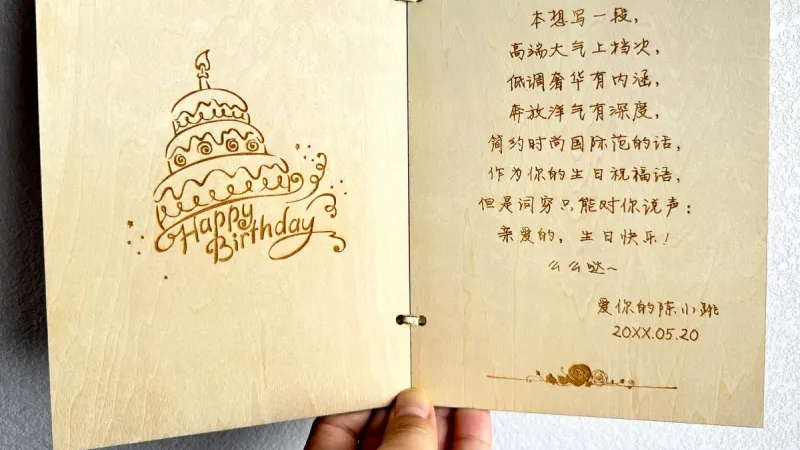 Happy
Birthday
本想写一段，
高端大气上档次，
低调奢华有内涵，
奔放洋气有深度，
简约时尚国际范的话，
作为你的生日祝福语，
但是词穷只能对你说声：
亲爱的，生日快乐！
么么哒~
爱你的陈小跳
20XX.05.20